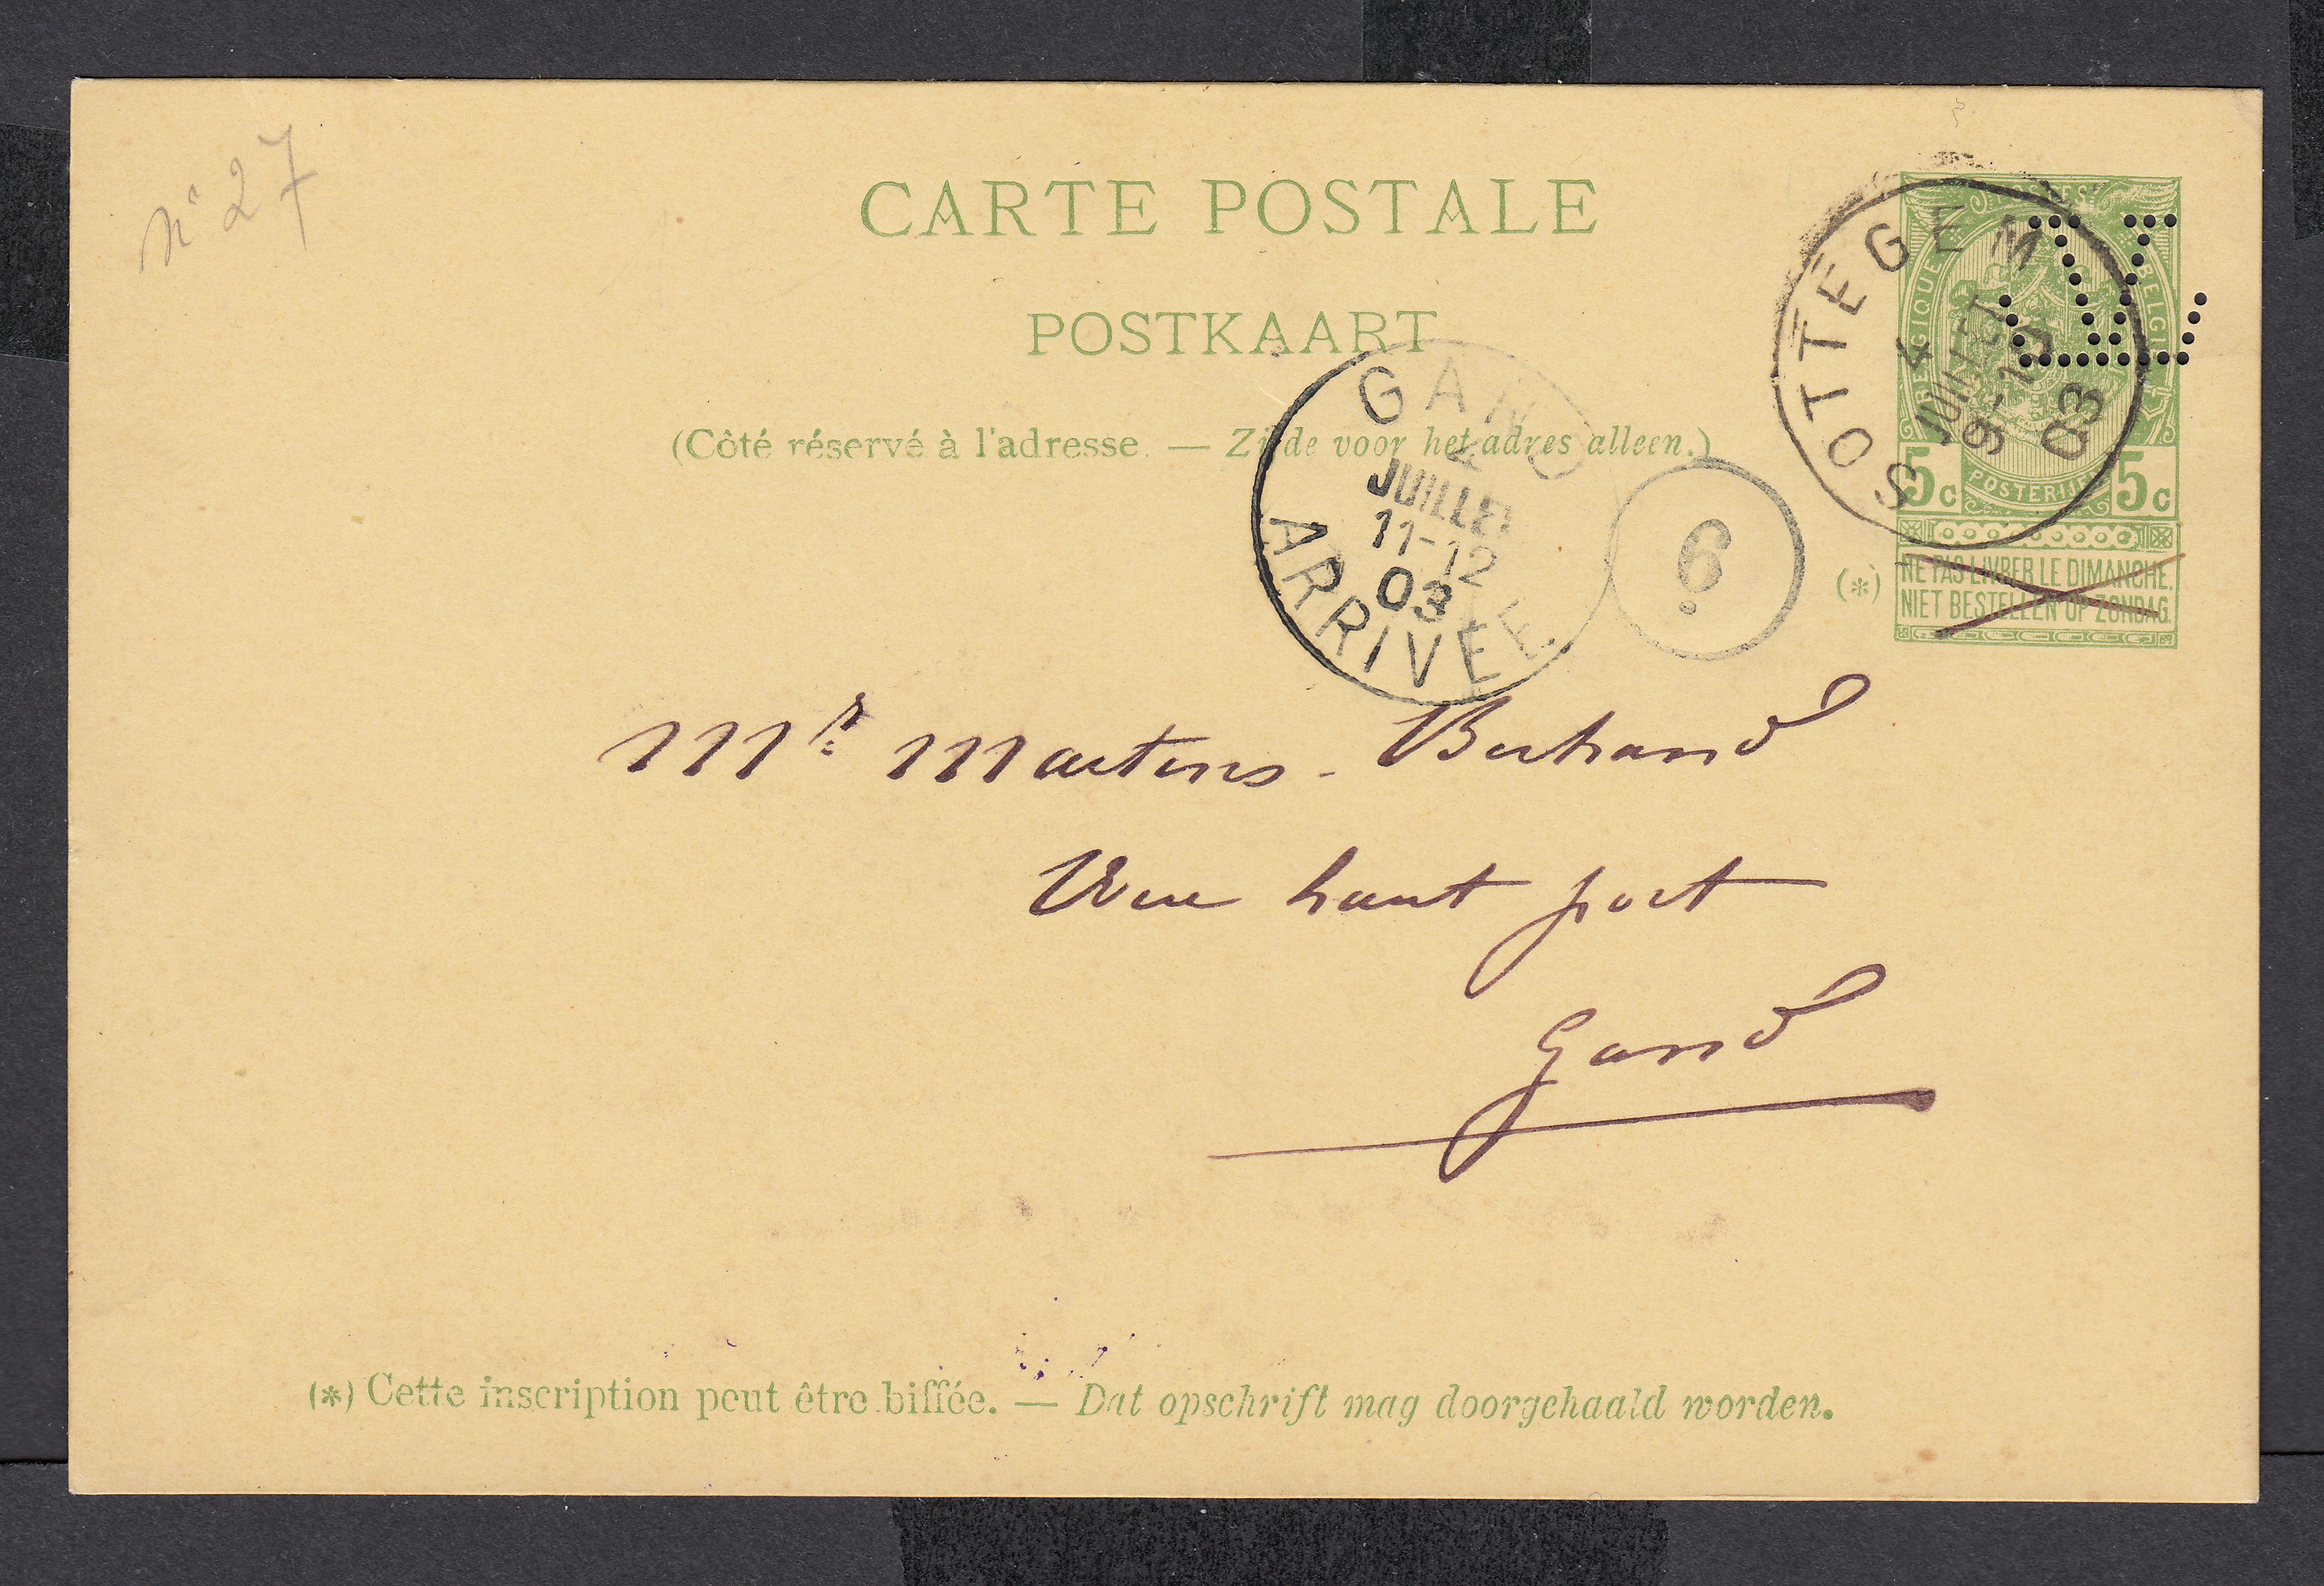 n° 27
CARTE POSTALE
POSTKAART
(Côté réservé à l'adresse. — Zijde voor het adres alleen.)
GAND
4
JUILLET
11-12
03
ARRIVÉE
6
SOTTEGEM
4
JUILLET
9-10
03
POSTES
BELGIQUE
BELGIË
5c
POSTERIJEN
5c
(*)
NE PAS LIVRER LE DIMANCHE.
NIET BESTELLEN OP ZONDAG.
Mr Martens-Bertrand
Rue haut port
Gand
(*) Cette inscription peut être biffée. — Dat opschrift mag doorgehaald worden.